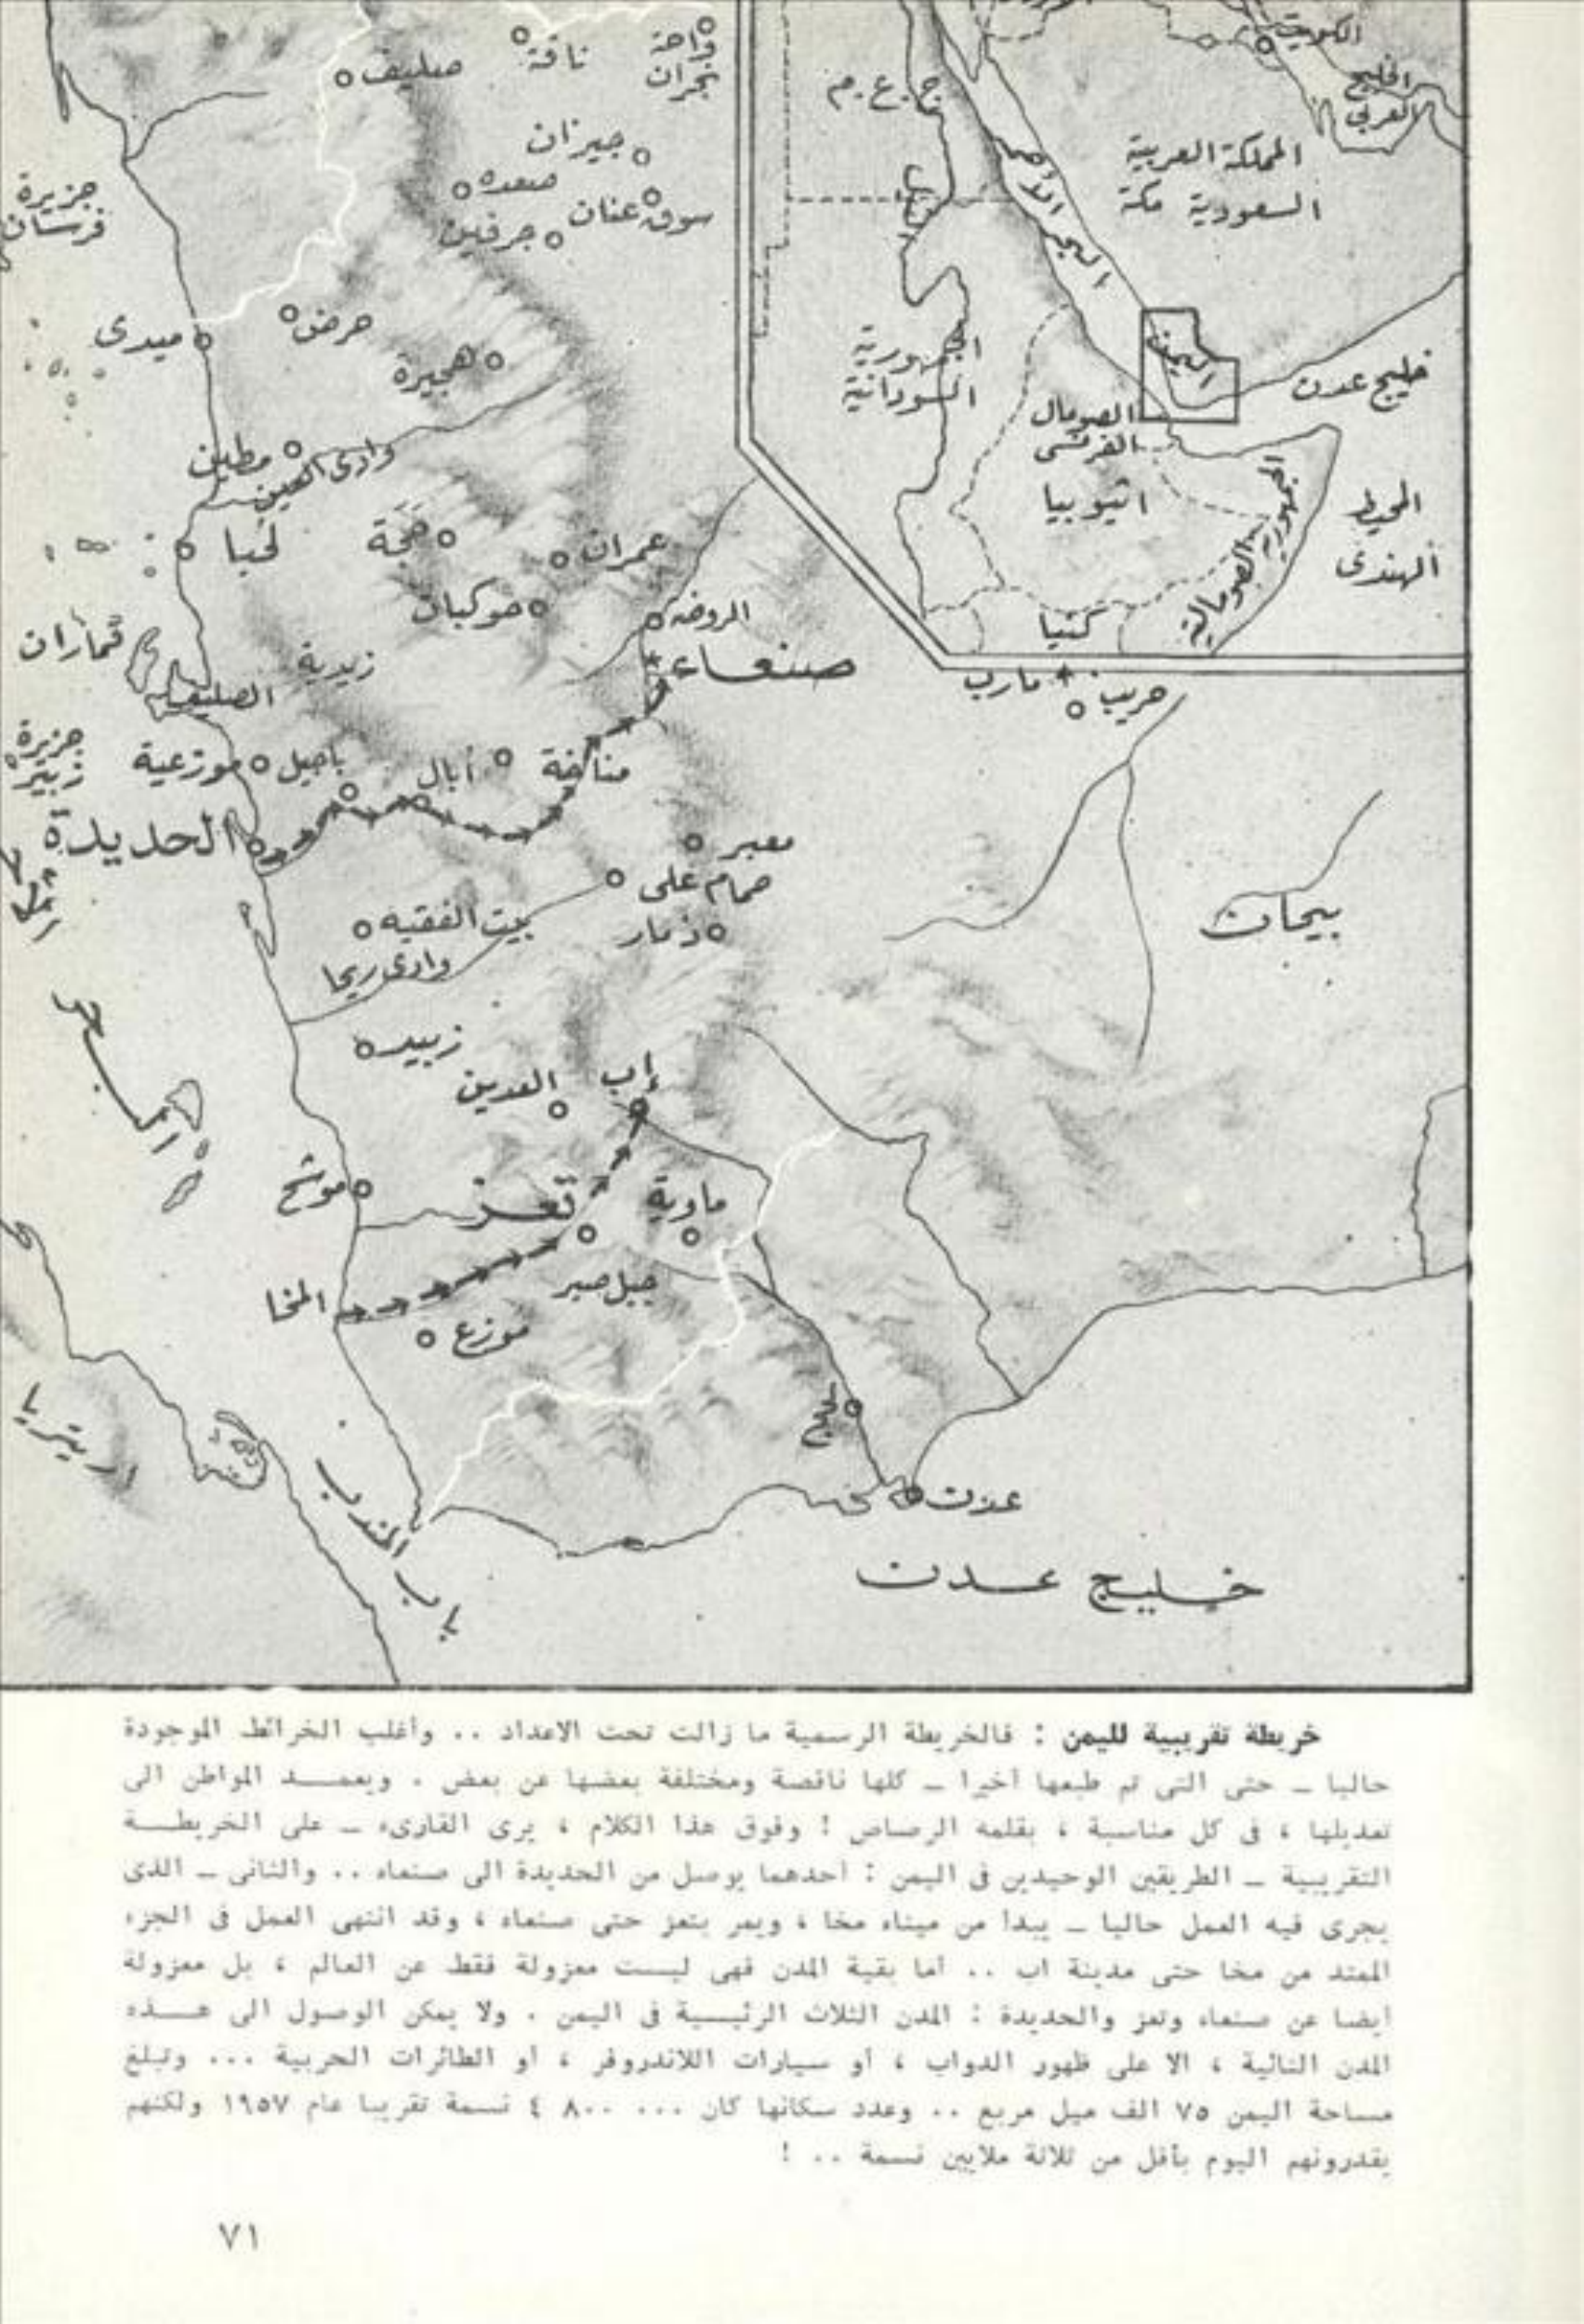 واحة
نجران
ناقة
صليف
جيزان
صعده
سوق عنان
جرفين
جزيرة
فرسان
ميدى
حرض
هجيرة
مطين
وادى العين
لحيا
حجة
عمران
حوكبان
الروضه
قماران
زيدية
صنعاء
الصليف
مارب
حريب
جزيرة
زبير
موزعية
باجيل
أبال
مناخة
الحديدة
معبر
حمام على
ذمار
بيت الفقيه
وادى ريحا
بيحان
زبيد
العدين
إب
موشح
تعز
ماوية
جبل صبر
المخا
موزع
اريتريا
لحج
عدن
باب المندب
خليج عدن
الكويت
الخليج
العربي
ج.ع.م
المملكة العربية
السعودية مكة
البحر الأحمر
النيل
الجمهورية
السودانية
اليمن
خليج عدن
الصومال
الفرنسى
اثيوبيا
الجمهورية الصومالية
المحيط
الهندى
كنيا
خريطة تقريبية لليمن : فالخريطة الرسمية ما زالت تحت الاعداد .. وأغلب الخرائط الموجودة
حاليا - حتى التى تم طبعها أخيرا - كلها ناقصة ومختلفة بعضها عن بعض . ويعمد المواطن الى
تعديلها ، فى كل مناسبة ، بقلمه الرصاص ! وفوق هذا الكلام ، يرى القارىء - على الخريطة
التقريبية - الطريقين الوحيدين فى اليمن : أحدهما يوصل من الحديدة الى صنعاء .. والثانى - الذى
يجرى فيه العمل حاليا - يبدأ من ميناء مخا ، ويمر بتعز حتى صنعاء ، وقد انتهى العمل فى الجزء
الممتد من مخا حتى مدينة اب .. أما بقية المدن فهى ليست معزولة فقط عن العالم ، بل معزولة
أيضا عن صنعاء وتعز والحديدة : المدن الثلاث الرئيسية فى اليمن . ولا يمكن الوصول الى هذه
المدن النائية ، الا على ظهور الدواب ، أو سيارات اللاندروفر ، أو الطائرات الحربية ... وتبلغ
مساحة اليمن ٧٥ الف ميل مربع .. وعدد سكانها كان ٤ ٨٠٠ ٠٠٠ نسمة تقريبا عام ١٩٥٧ ولكنهم
يقدرونهم اليوم بأقل من ثلاثة ملايين نسمة .. !
٧١